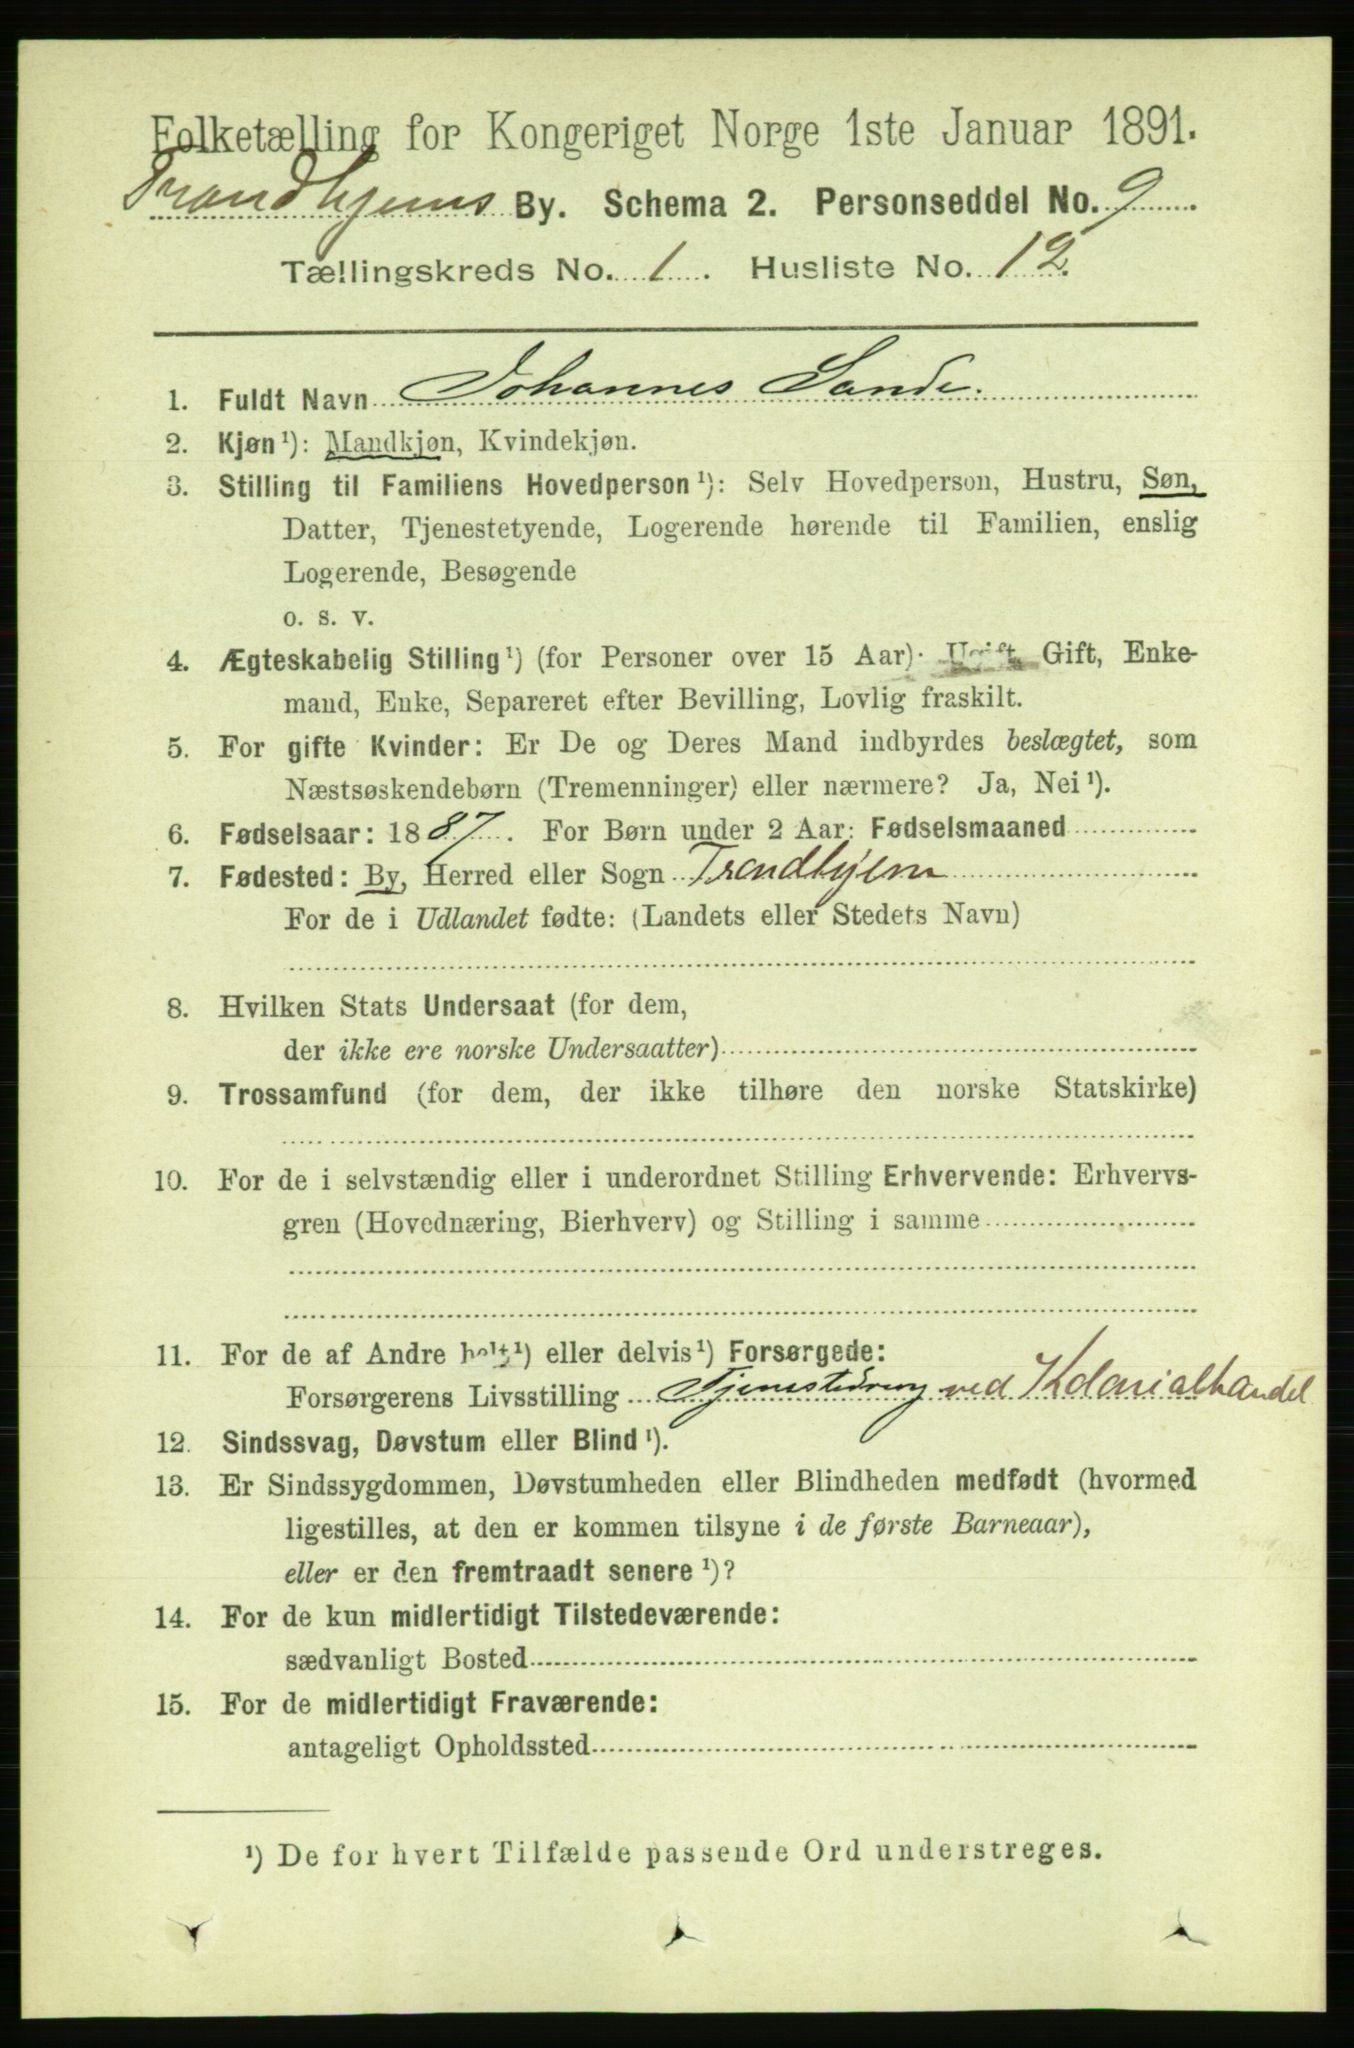 Folketælling for Kongeriget Norge 1ste Januar 1891.
Trondhjems By. Schema 2. Personseddel No. 9
Tællingskreds No. 1. Husliste No. 12.
1. Fuldt Navn Johannes Sande.
2. Kjøn¹): Mandkjøn, Kvindekjøn.
3. Stilling til Familiens Hovedperson¹): Selv Hovedperson, Hustru, Søn,
Datter, Tjenestetyende, Logerende hørende til Familien, enslig
Logerende, Besøgende
o. s. v.
4. Ægteskabelig Stilling¹) (for Personer over 15 Aar): Ugift, Gift, Enke-
mand, Enke, Separeret efter Bevilling, Lovlig fraskilt.
5. For gifte Kvinder: Er De og Deres Mand indbyrdes beslægtet, som
Næstsøskendebørn (Tremenninger) eller nærmere? Ja, Nei¹).
6. Fødselsaar: 1887. For Børn under 2 Aar: Fødselsmaaned
7. Fødested: By, Herred eller Sogn Trondhjem
For de i Udlandet fødte: (Landets eller Stedets Navn)
8. Hvilken Stats Undersaat (for dem,
der ikke ere norske Undersaatter)
9. Trossamfund (for dem, der ikke tilhøre den norske Statskirke)
10. For de i selvstændig eller i underordnet Stilling Erhvervende: Erhvervs-
gren (Hovednæring, Bierhverv) og Stilling i samme
11. For de af Andre helt¹) eller delvis¹) Forsørgede:
Forsørgerens Livsstilling Tjenestedreng ved Kolonialhandel
12. Sindssvag, Døvstum eller Blind¹).
13. Er Sindssygdommen, Døvstumheden eller Blindheden medfødt (hvormed
ligestilles, at den er kommen tilsyne i de første Barneaar),
eller er den fremtraadt senere¹)?
14. For de kun midlertidigt Tilstedeværende:
sædvanligt Bosted
15. For de midlertidigt Fraværende:
antageligt Opholdssted
¹) De for hvert Tilfælde passende Ord understreges.